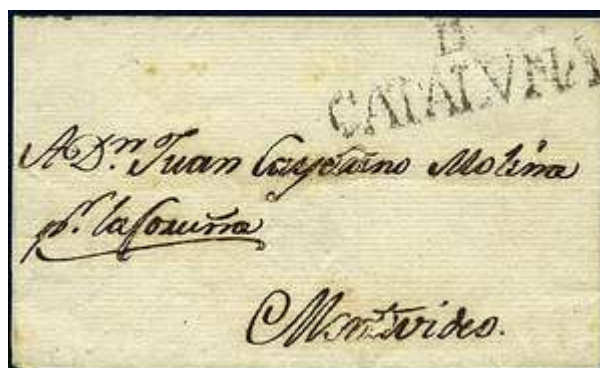 D
CATALVÑA
A Dn. Juan Cayetano Molina
pr. la Coruña
Montevideo.